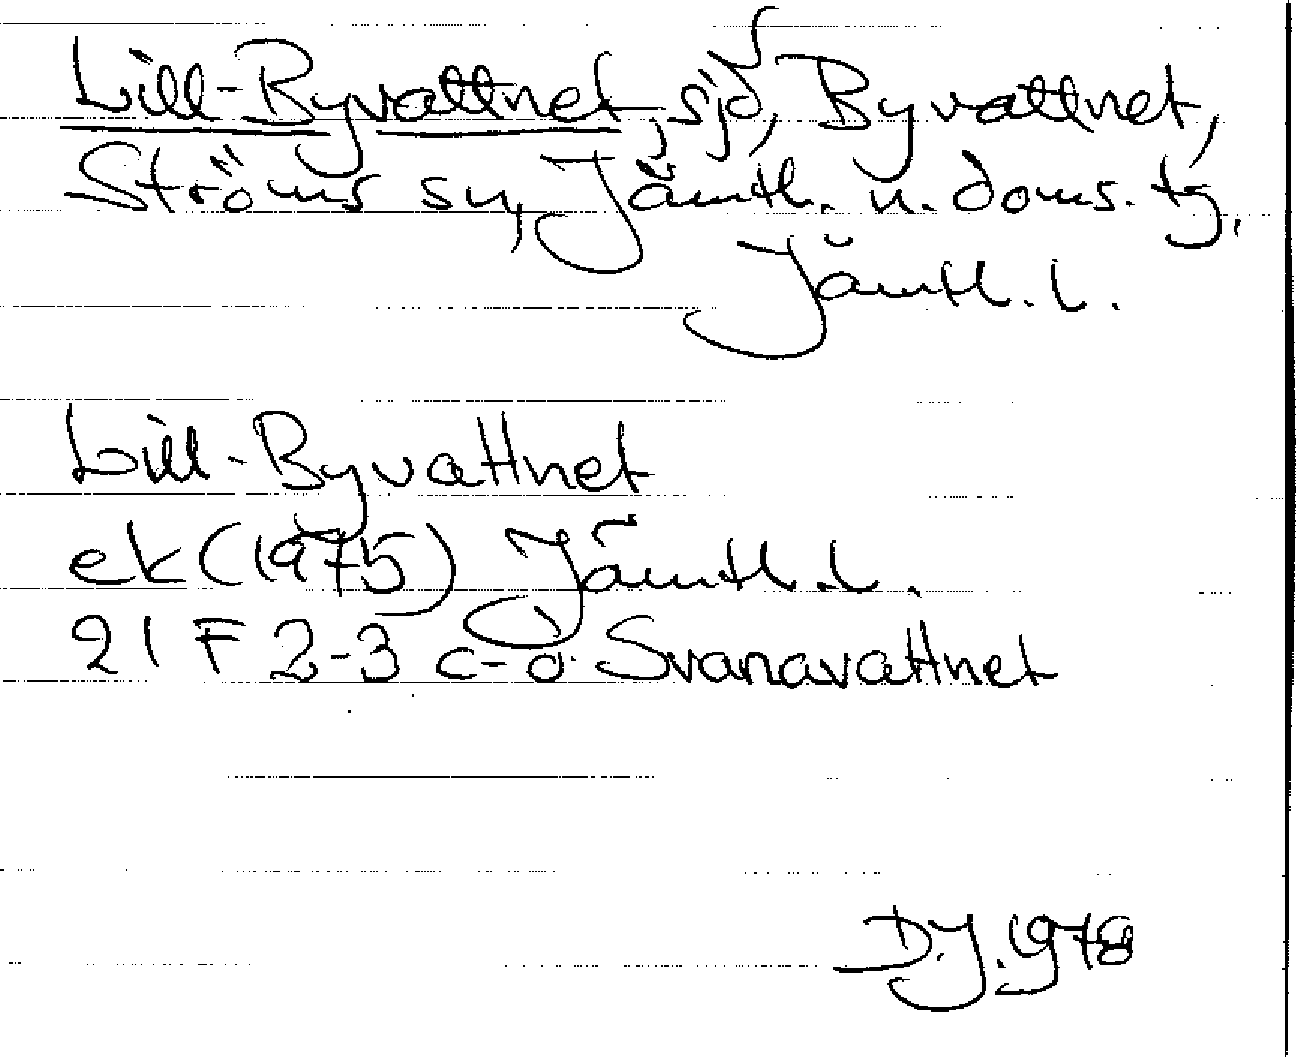 Lill-Byvattnet, sjö, Byvattnet,
Ströms sn, Jämtl. n. doms. tg,
Jämtl. l.
Lill-Byvattnet
ek (1975) Jämtl. l.
21 F 2-3 c-d Svanavattnet
D.J. 1978